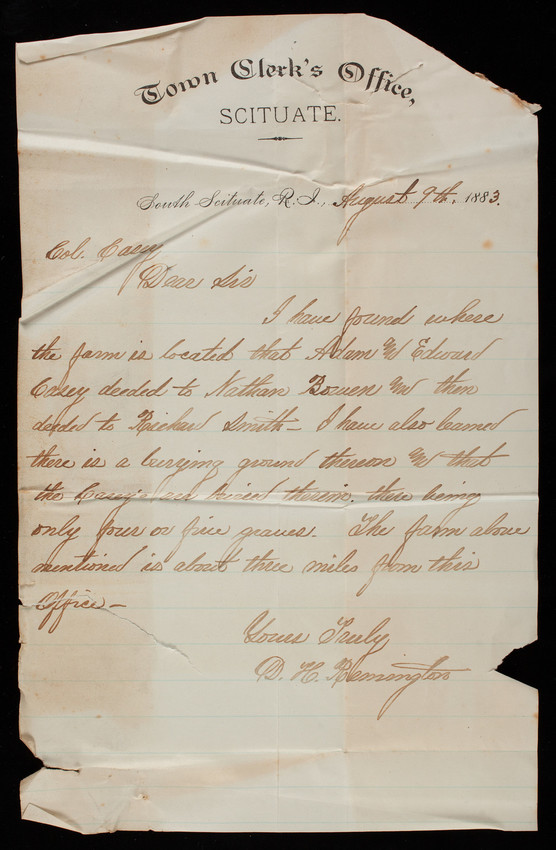 Town Clerk's Office,
SCITUATE.
South Scituate, R. I., August 9th. 1883.
Col. Casey
Dear Sir
I have found where
the farm is located that Adam & Edward
Casey deeded to Nathan Bowen & then
deeded to Richard Smith — I have also learned
there is a burying ground thereon & that
the Casey's are buried therein, there being
only four or five graves. The farm above
mentioned is about three miles from this
Office —
Yours Truly
D. H. Remington